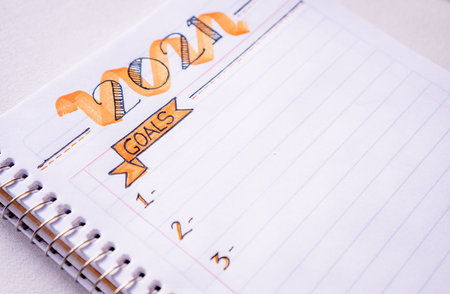 2021
GOALS
1-
2-
3-